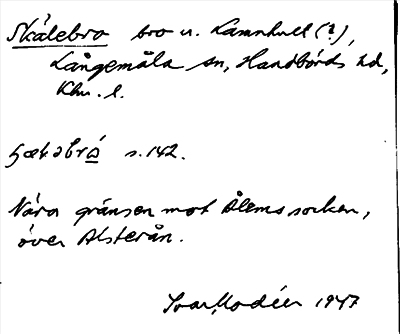 Skälebro bro u. Lammhult (?),
Långemåla sn, Handbörds hd,
Klm. l.
s. 142.
Nära gränsen mot Ålems socken,
över Alsterån.
Ivar Modéer 1947